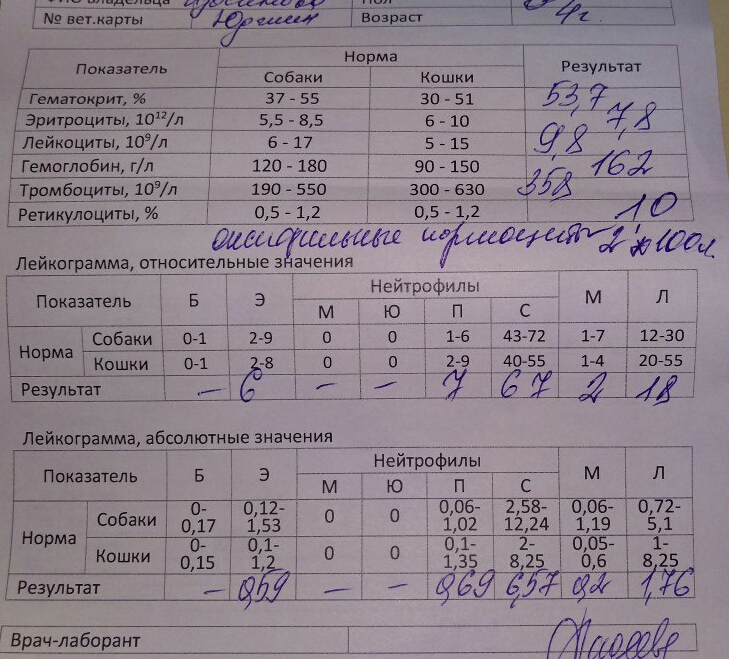 № вет.карты Возраст 4г.
Показатель Норма Результат
Собаки Кошки
Гематокрит, % 37 - 55 30 - 51 53,7
Эритроциты, 10¹²/л 5,5 - 8,5 6 - 10 7,8
Лейкоциты, 10⁹/л 6 - 17 5 - 15 9,8
Гемоглобин, г/л 120 - 180 90 - 150 162
Тромбоциты, 10⁹/л 190 - 550 300 - 630 358
Ретикулоциты, % 0,5 - 1,2 0,5 - 1,2 10
оксифильные нормоциты 2 : 100л.
Лейкограмма, относительные значения
Показатель Б Э Нейтрофилы М Л
М Ю П С
Норма Собаки 0-1 2-9 0 0 1-6 43-72 1-7 12-30
Кошки 0-1 2-8 0 0 2-9 40-55 1-4 20-55
Результат — 6 — — 7 67 2 18
Лейкограмма, абсолютные значения
Показатель Б Э Нейтрофилы М Л
М Ю П С
Норма Собаки 0-0,17 0,12-1,53 0 0 0,06-1,02 2,58-12,24 0,06-1,19 0,72-5,1
Кошки 0-0,15 0,1-1,2 0 0 0,1-1,35 2-8,25 0,05-0,6 1-8,25
Результат — 0,59 — — 0,69 6,57 0,2 1,76
Врач-лаборант